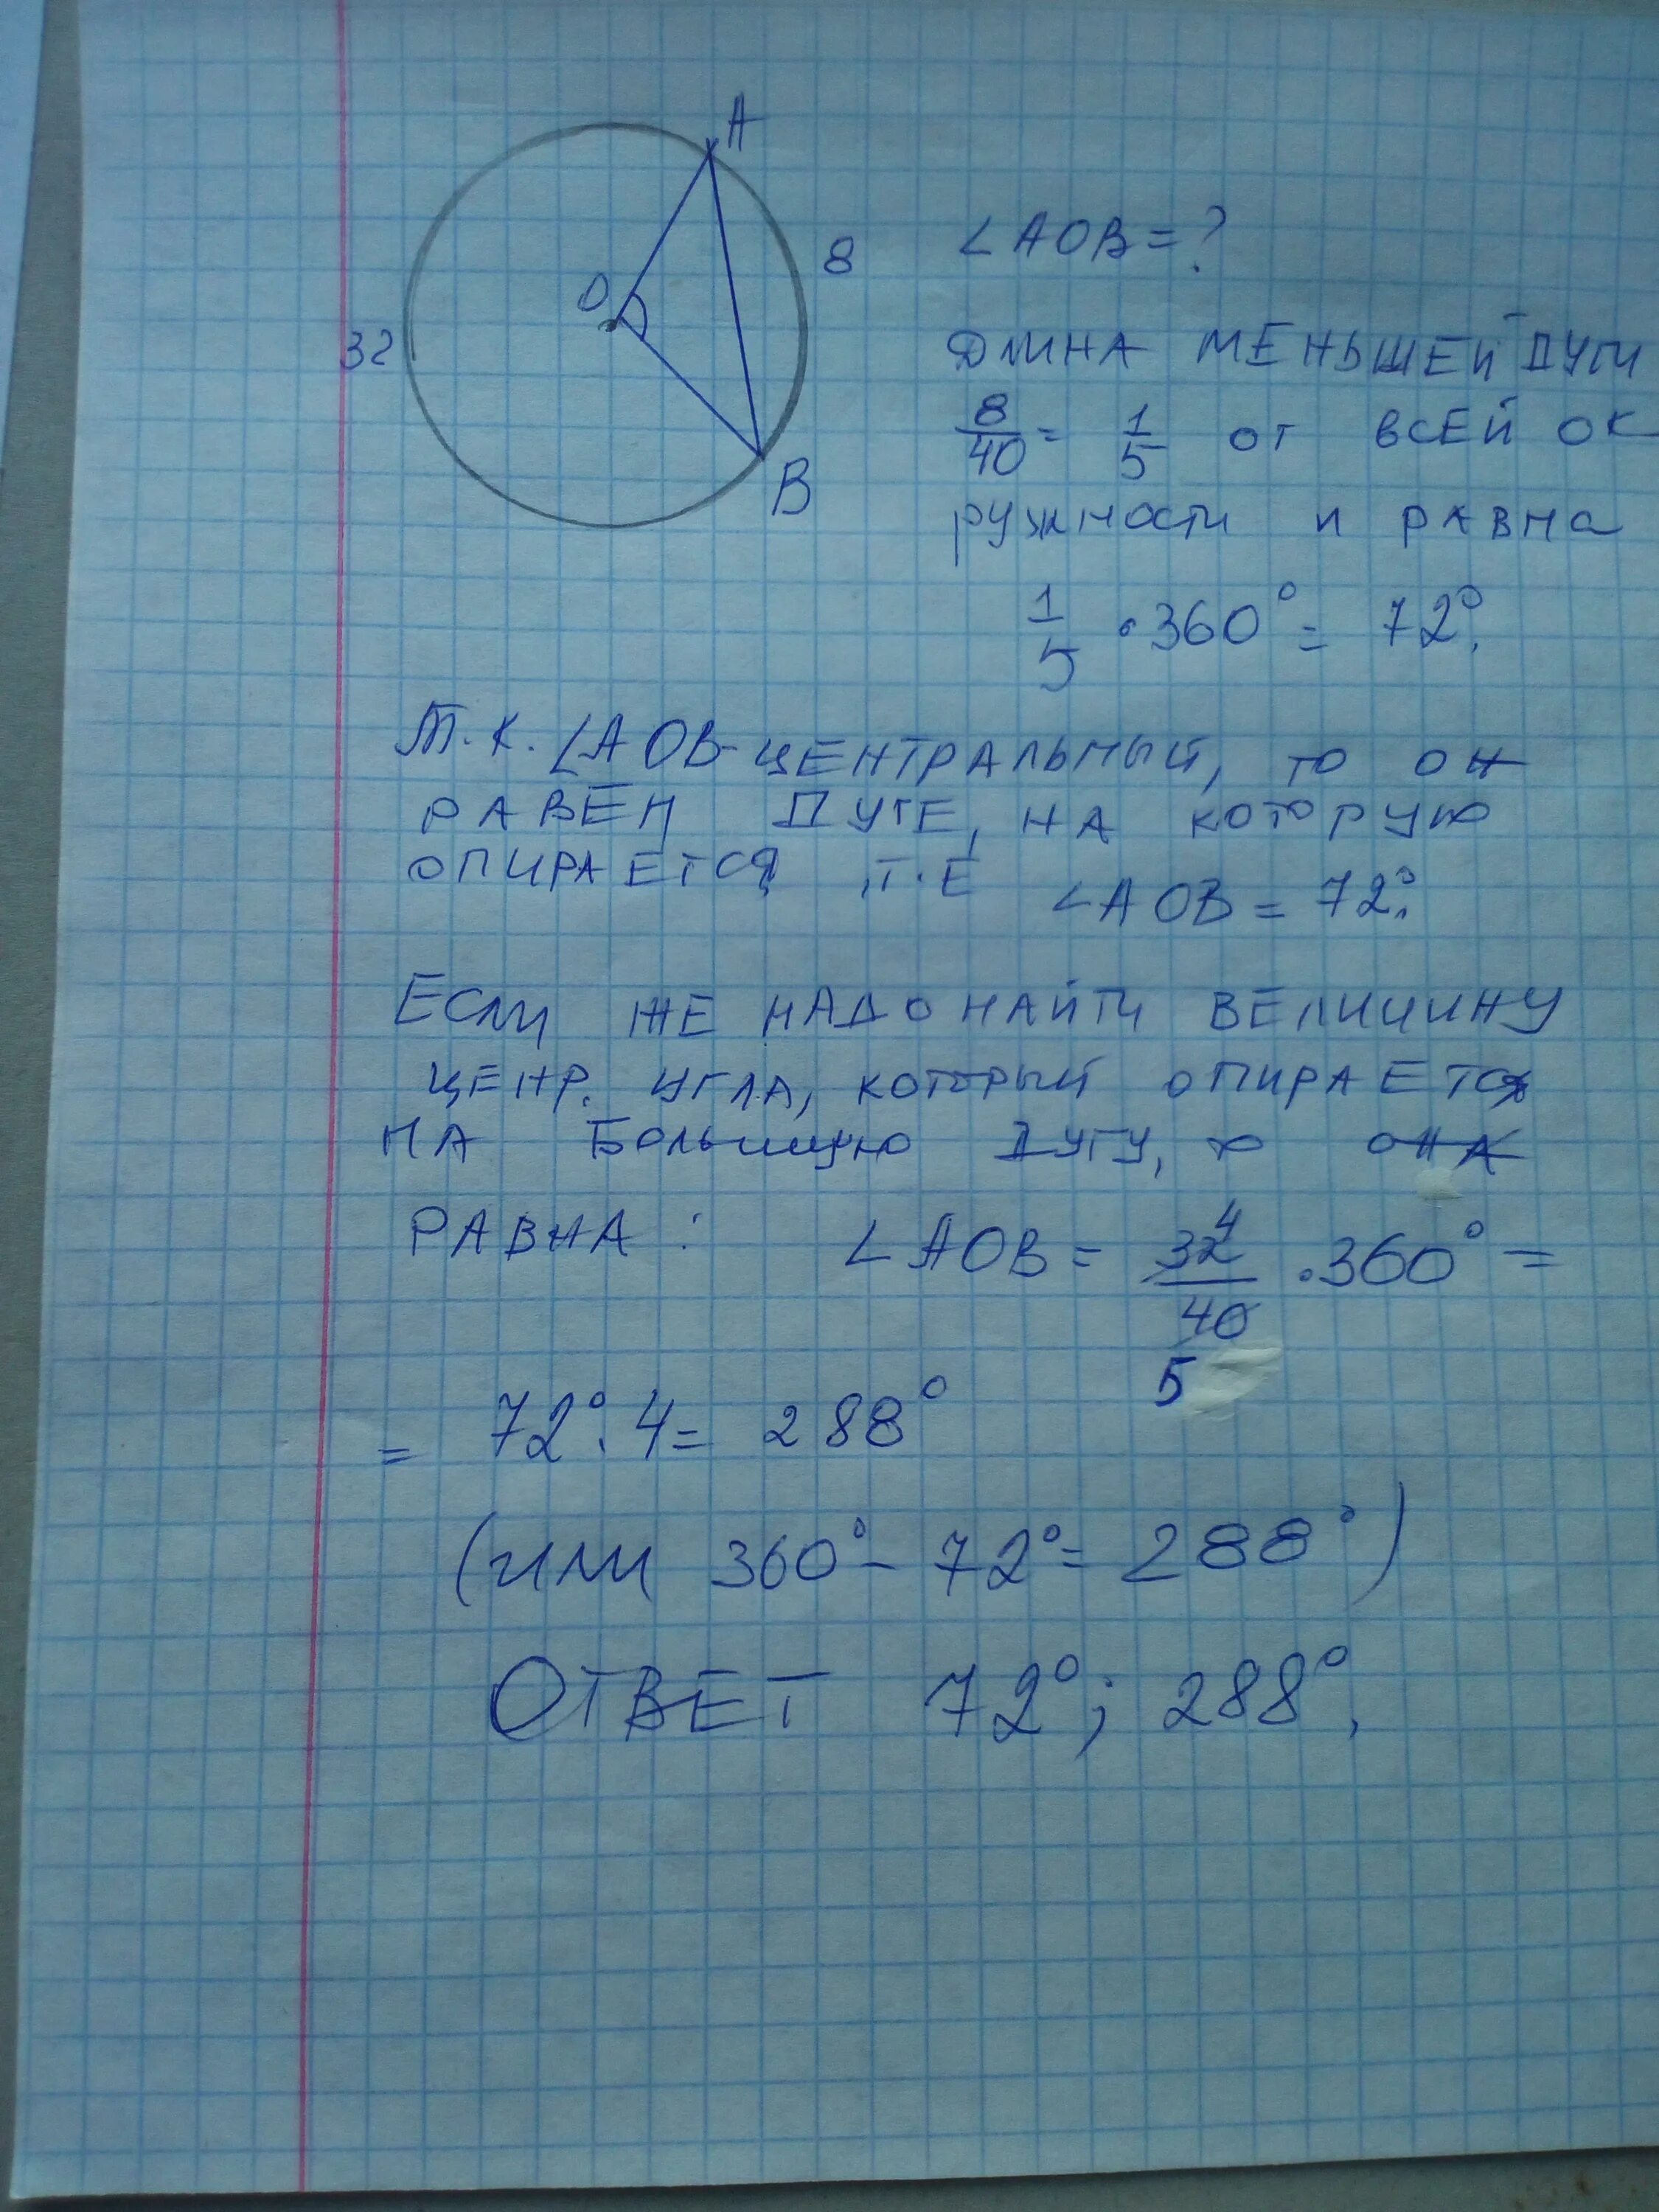 A
8
∠AOB = ?
O
32
ДЛИНА МЕНЬШЕЙ ДУГИ
8/40 = 1/5 ОТ ВСЕЙ ОК
B
РУЖНОСТИ И РАВНА
1/5 · 360° = 72°.
Т.К. ∠AOB - ЦЕНТРАЛЬНЫЙ, ТО ОН
РАВЕН ДУГЕ, НА КОТОРУЮ
ОПИРАЕТСЯ, Т.Е
∠AOB = 72°.
ЕСЛИ ЖЕ НАДО НАЙТИ ВЕЛИЧИНУ
ЦЕНР. УГЛА, КОТОРЫЙ ОПИРАЕТСЯ
НА БОЛЬШУЮ ДУГУ, ТО ОНА
РАВНА: ∠AOB = 32/40 · 360° =
4
5
= 72° · 4 = 288°
(ИЛИ 360° - 72° = 288°)
ОТВЕТ 72°; 288°.